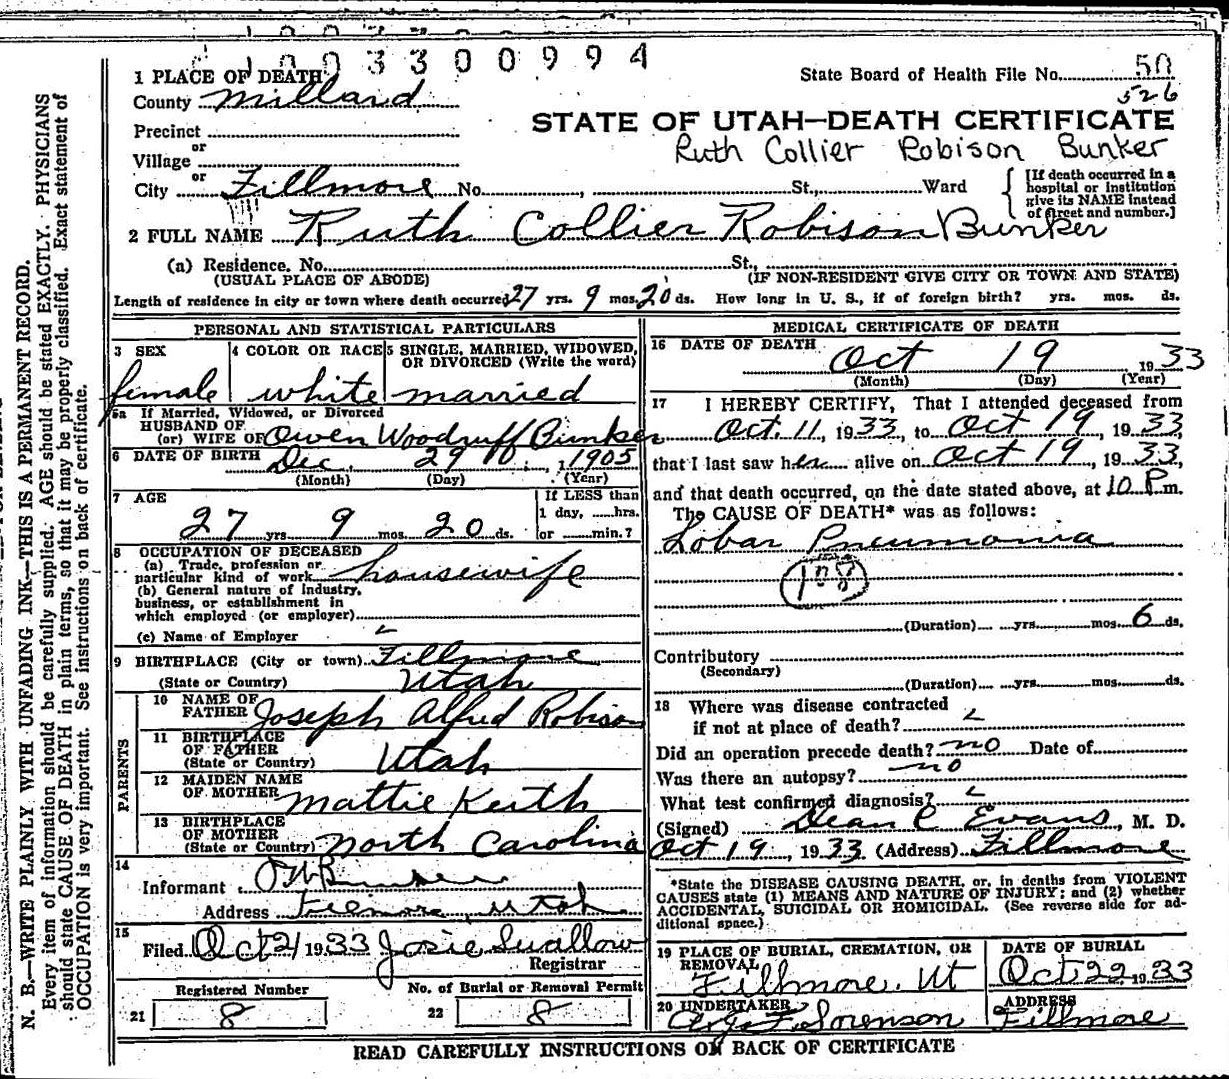 1003300994
1 PLACE OF DEATH
County Millard
State Board of Health File No. 50
526
Precinct
or
Village
or
City Fillmore No. , St., Ward
STATE OF UTAH—DEATH CERTIFICATE
Ruth Collier Robison Bunker
[If death occurred in a
hospital or institution
give its NAME instead
of street and number.]
2 FULL NAME Ruth Collier Robison Bunker
(a) Residence. No. St.,
(USUAL PLACE OF ABODE) (IF NON-RESIDENT GIVE CITY OR TOWN AND STATE)
Length of residence in city or town where death occurred 27 yrs. 9 mos. 20 ds. How long in U. S., if of foreign birth? yrs. mos. ds.
PERSONAL AND STATISTICAL PARTICULARS
3 SEX
female
4 COLOR OR RACE
white
5 SINGLE, MARRIED, WIDOWED,
OR DIVORCED (Write the word)
married
5a If Married, Widowed, or Divorced
HUSBAND OF
(or) WIFE OF Owen Woodruff Bunker
6 DATE OF BIRTH Dec. 29 , 1905
(Month) (Day) (Year)
7 AGE
27 yrs. 9 mos. 20 ds.
If LESS than
1 day, hrs.
or min.?
8 OCCUPATION OF DECEASED
(a) Trade, profession or
particular kind of work housewife
(b) General nature of Industry,
business, or establishment in
which employed (or employer)
(c) Name of Employer
9 BIRTHPLACE (City or town) Fillmore
(State or Country) Utah
PARENTS
10 NAME OF
FATHER Joseph Alfred Robison
11 BIRTHPLACE
OF FATHER
(State or Country) Utah
12 MAIDEN NAME
OF MOTHER Mattie Keith
13 BIRTHPLACE
OF MOTHER
(State or Country) North Carolina
14
Informant O W Bunker
Address Fillmore, Utah
15
Filed Oct 21 1933 Josie Swallow
Registrar
Registered Number
21 8
No. of Burial or Removal Permit
22 8
MEDICAL CERTIFICATE OF DEATH
16 DATE OF DEATH
Oct 19 1933
(Month) (Day) (Year)
17 I HEREBY CERTIFY, That I attended deceased from
Oct. 11, 1933, to Oct 19, 1933,
that I last saw her alive on Oct 19, 1933,
and that death occurred, on the date stated above, at 10 P.m.
The CAUSE OF DEATH* was as follows:
Lobar Pneumonia
108
(Duration) yrs. mos. 6 ds.
Contributory
(Secondary)
(Duration) yrs. mos. ds.
18 Where was disease contracted
if not at place of death?
Did an operation precede death? no Date of
Was there an autopsy? no
What test confirmed diagnosis?
(Signed) Dean C Evans, M. D.
Oct 19, 1933 (Address) Fillmore
*State the DISEASE CAUSING DEATH, or, in deaths from VIOLENT
CAUSES state (1) MEANS AND NATURE OF INJURY; and (2) whether
ACCIDENTAL, SUICIDAL OR HOMICIDAL. (See reverse side for ad-
ditional space.)
19 PLACE OF BURIAL, CREMATION, OR
REMOVAL
Fillmore. Ut
DATE OF BURIAL
Oct. 22, 1933
20 UNDERTAKER
Sorenson
ADDRESS
Fillmore
READ CAREFULLY INSTRUCTIONS ON BACK OF CERTIFICATE
N. B.—WRITE PLAINLY WITH UNFADING INK—THIS IS A PERMANENT RECORD.
Every item of information should be carefully supplied. AGE should be stated EXACTLY. PHYSICIANS
should state CAUSE OF DEATH in plain terms, so that it may be properly classified. Exact statement of
OCCUPATION is very important. See instructions on back of certificate.